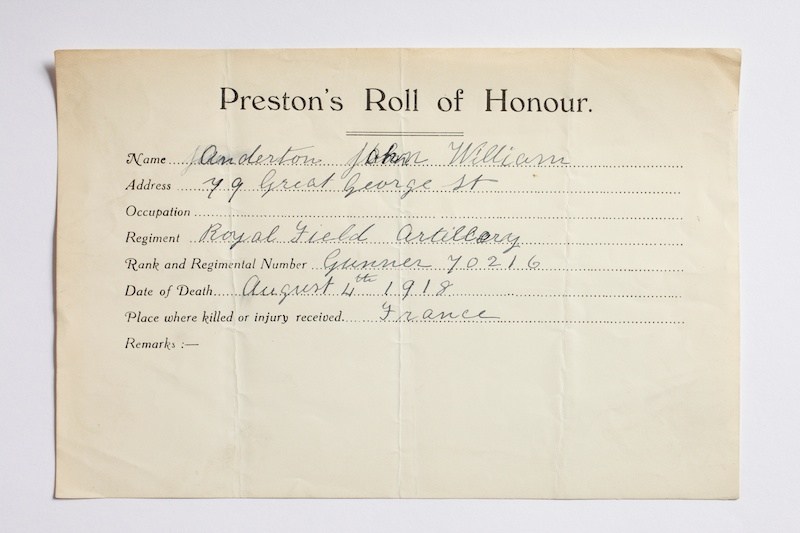 Preston's Roll of Honour.
Name .... Anderton John William
Address 79 Great George St
Occupation
Regiment Royal Field Artillery
Rank and Regimental Number Gunner 70216
Date of Death.... August 4th 1918
Place where killed or injury received.... France
Remarks :—